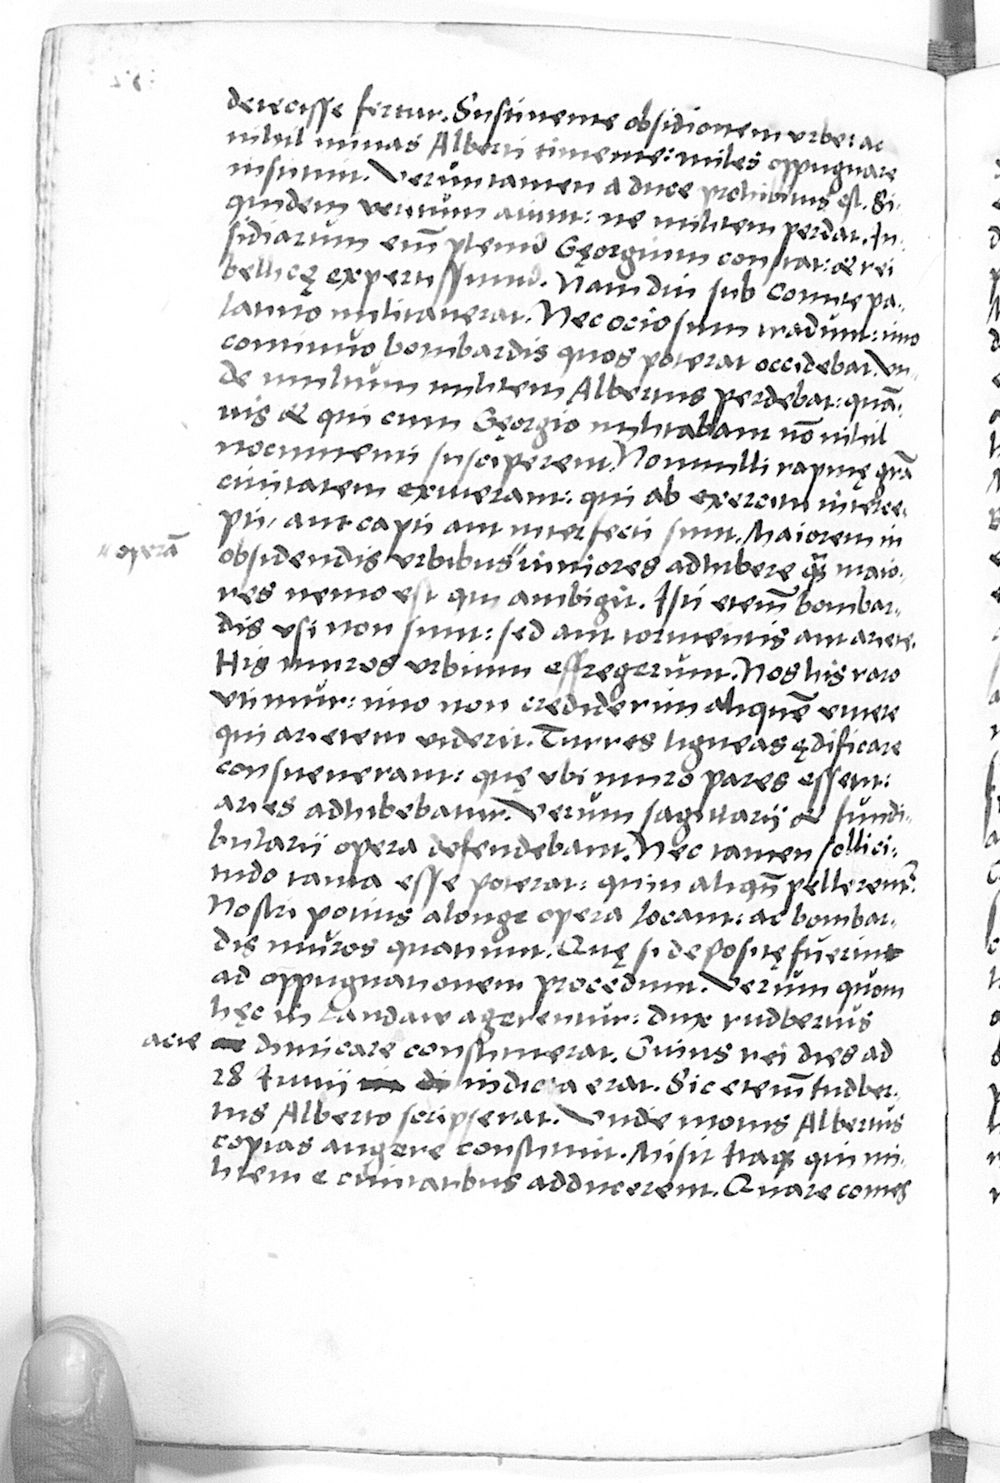 detecisse fertur. Sustinente obsidionem urbe: ac
nihil minas Alberti timente: miles oppugnare
instituit. Veruntamen a duce prohibitus est. Si-
quidem veritum aiunt: ne militem perdat. In-
sidiarum em̄ plenū Gęorgium constat: & rei
bellicę expertissimū. Nam diu sub Comite pa-
latino militaverat. Nec ociosum tradunt: imo
continuo bombardis quos poterat occidebat. Un-
de multum militem Albertus perdebat: quā-
vis & qui cum Gęorgio militabant nō nihil
nocumenti susciperent. Nonnulli rapinę grā
civitatem exierant: qui ab exercitu interce-
pti, aut capti aut interfecti sunt. Maiorem in
operā
obsidendis urbibus iuniores adhibere q̄ maio-
res nemo est qui ambigit. Isti etem̄ bombar-
dis usi non sunt: sed aut tormentis aut ariete.
His muros urbium effregerunt. Nos his raro
utimur: imo non crediderim aliquē vivere
qui arietem viderit. Turres ligneas ędificare
consueverant: quę ubi muro pares essent:
aries adhibebatur. Verum sagittarij & fundi-
bularij opera defendebant. Nec tamen sollici-
tudo tanta esse poterat: quin aliqn̄ pellerent̄.
Nostri potius a longe opera locant: ac bombar-
dis muros quatiunt. Quę si depositę fuerint
ad oppugnationem procedunt. Verum quom
hęc in Landaw agerentur: dux rudbertus
acie
dimicare constituerat. Cuius rei dies ad
28 Iunij indicta erat. Sic etem̄ rudber-
tus Alberto scripserat. Unde motus Albertus
copias augere constituit. Misit itaq qui mi-
litem e civitatibus adducerent. Quare comes